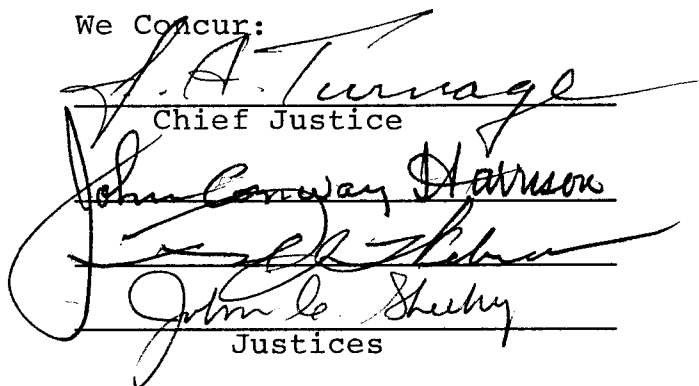 We Concur:
J. A. Turnage
Chief Justice
John Conway Harrison
John C. Sheehy
Justices